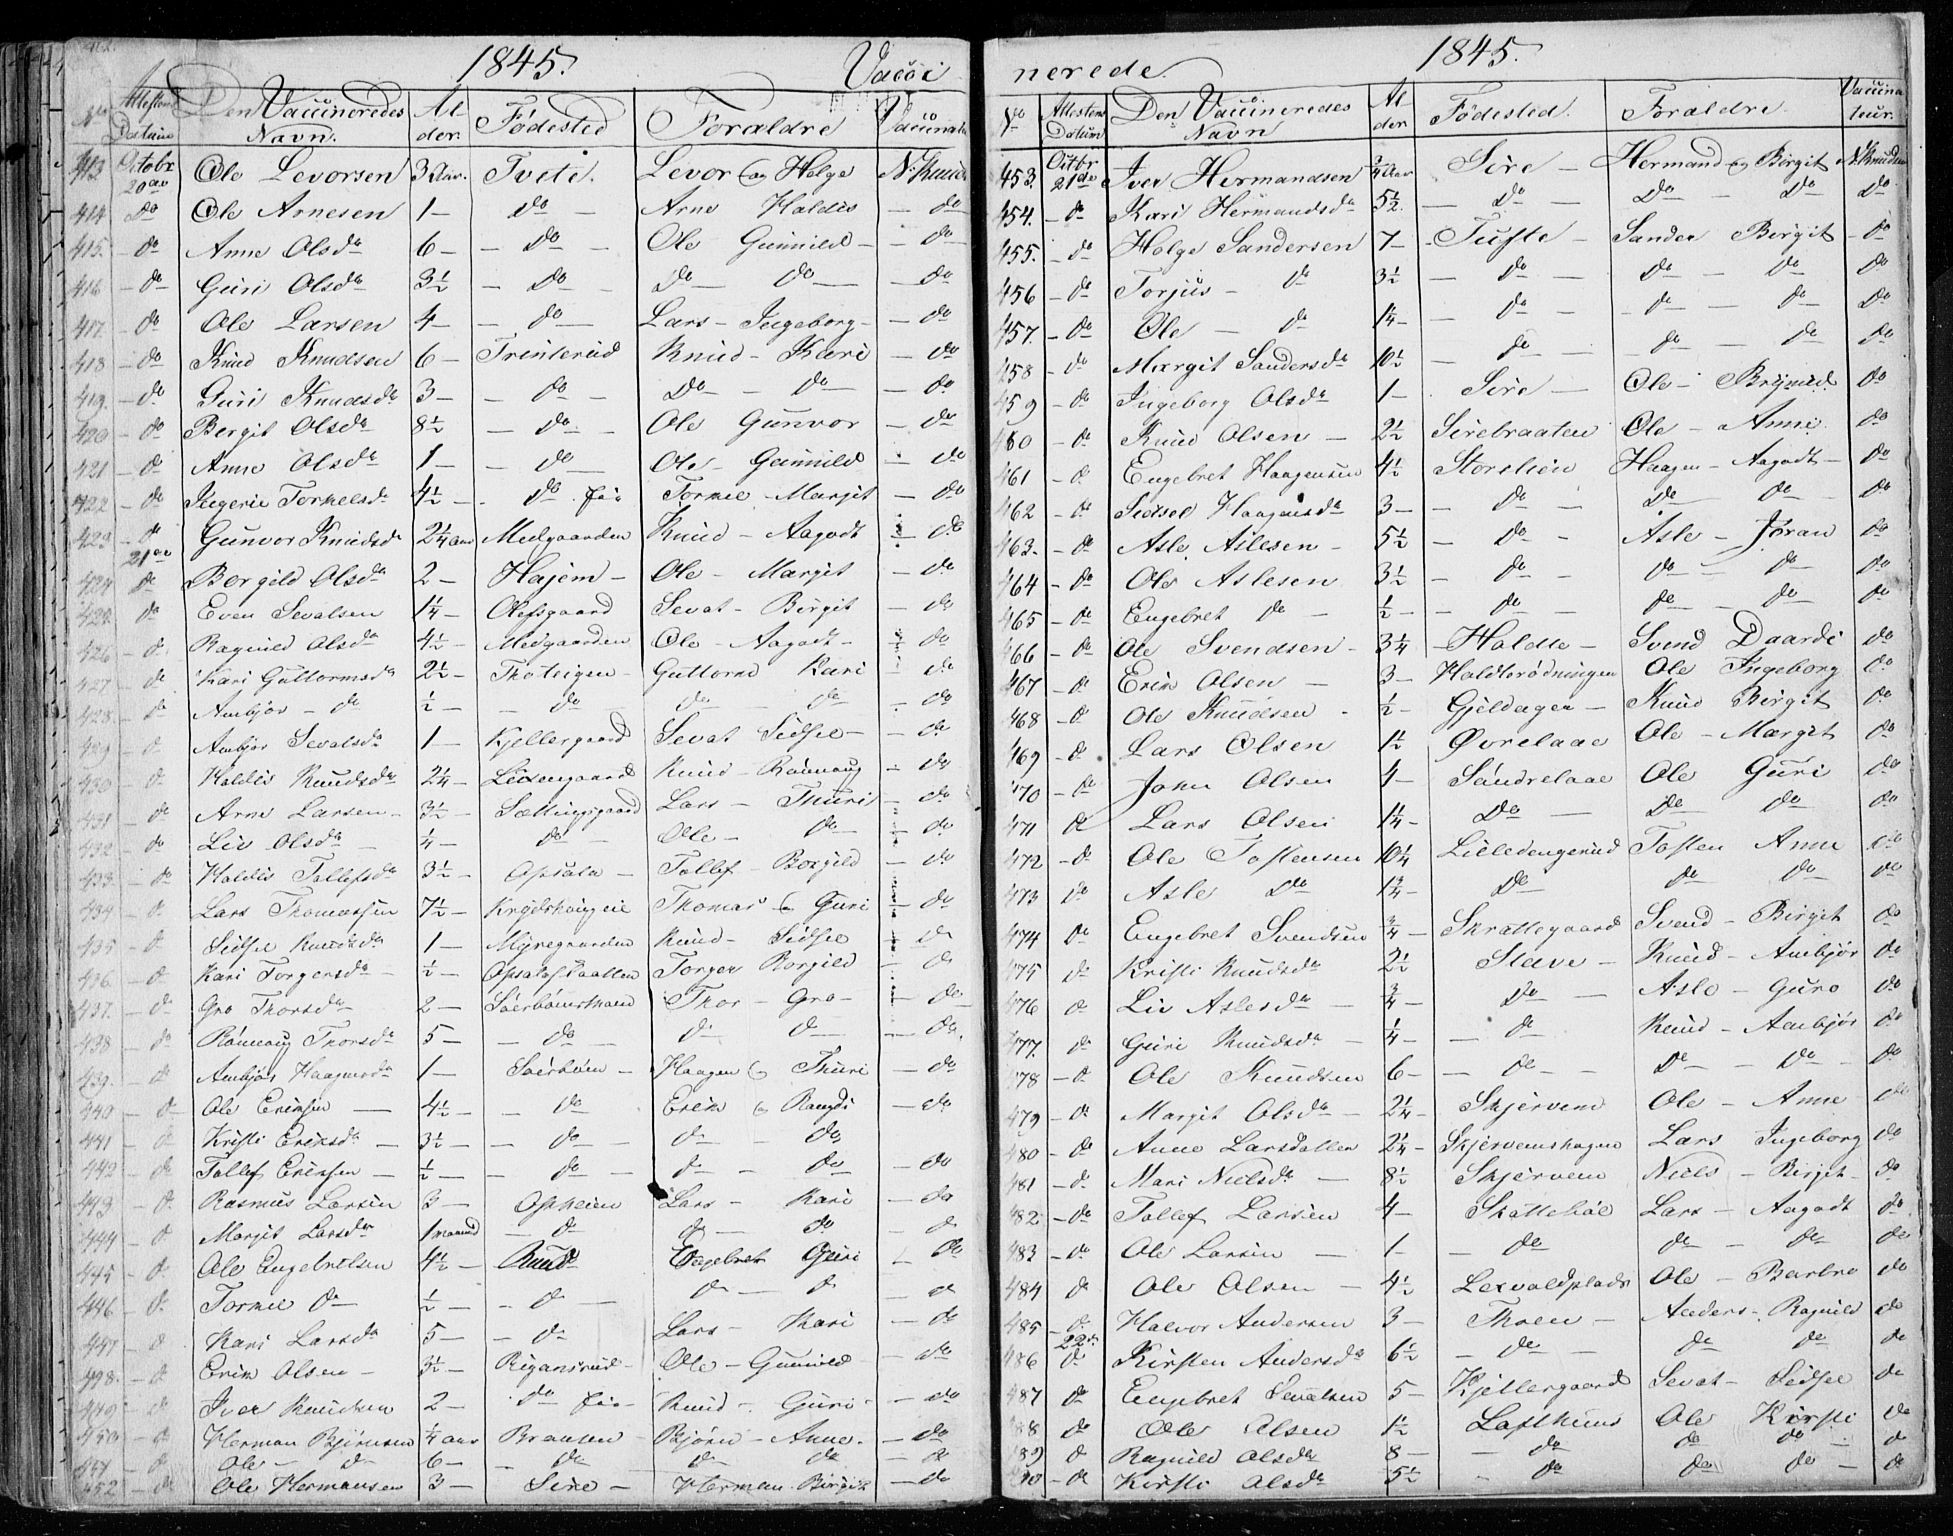 1845. Vacci
No Attestens Datum Den Vaccineredes Navn. Alder. Fødested Forældre Vaccinateur
413 Octobr 20de Ole Levorsen 3 Aar. Tveto. Levor og Helge N. Knud
414 do Ole Arnesen 1 — do — Arne Haldis — do
415. — do Anne Olsda 6 — do — Ole Gunnild — do
416 — do Guri Olsda 3½ — do — do — do — do
417. — do Ole Larsen 4 — do — Lars — Ingeborg — do
418 — do Knud Knudsen 6 — Trinterud Knud — Kari — do
419. — do Guri Knudsda 3 — do — do — do — do
420 — do Bergit Olsda 8½ — do — Ole Gunvor — do
421 — do Anne Olsda 1 — do — Ole — Gunnild — do
422 — do Ingerie Torkelsda 4½ — do Torkel — Margit — do
423 — do Gunvor Knudsda 2¼ aar Medgaarden Knud — Aagodt — do
21de
424 do Borgild Olsda 2 — Hajem — Ole — Margit — do
425. do Even Sevatsen 1¼ — Olefsgaard Sevat — Birgit — do
426 — do Ragnild Olsda 4½ — Medgaarden Ole — Aagodt — do
427 — do Kari Guttormsda 2½ — Thoteigen — Guttorm Kari do
428. — do Ambjør — do ½ — do — do — do — do
429 — do Ambjør Sevatsda 1 — Kjellergaard Sevat Sidsel — do
430 — do Haldis Knudsda 2¼ — Knud — Rønnoug — do
431 — do Arne Larsen — 3½ — Sættingsgaard Lars — Thuri — do
432 — do Liv Olsda — ¼ — do — Ole — do — do
433. — do Haldis Tollefsda 3½ — Opsata — Tollef — Borgild — do
434 — do Lars Thomassen 7½ — Thomas og Guri — do
435 — do Sidsel Knudsda 1 — Myregaarden Knud — Sidsel do
436. — do Kari Torgersda — ½ — Torger Borgild — do
437. — do Gro Thorsda — 2 — Thor — Gro — do
438 — do Rønnoug Thorsda 5 — do — do — do — do
439. — do Ambjør Haagensda 1 — Søerbøen — Haagen og Thuri — do
440 — do Ole Eriksen — 4½ — do Erik og Rangdi — do
441 — do Kristi Eriksda — 3½ — do — do — do
442 — do Tollef Eriksen — ½ — do — do — do — do
443 — do Rasmus Larsen 3 — Opheim Lars — Kari — do
444 — do Margit Larsda 1 maaned — do do — do do
445 — do Ole Engebretsen 4½ — Ruud Engebret Guri do
446 — do Torkel do — ½ — do — do — do — do
447 — do Kari Larsda 5 — do Lars — Kari — do
448. — do Erik Olsen — 3½ — Rigansrud — Ole — Gunnild — do
449 — do Iver Knudsen 2 — do Knud — Guri — do
450 — do Herman Bjørnsen ¼ aar Braaten — Bjørn — Anne — do
451 — do Ole — do 6 — do do do — do
452 — do Ole Hermansen 3 — Sire — Herman Birgit — do
1845.
nerede.
No Attestens Datum Den Vaccineredes Navn Alder Fødested. Forældre. Vaccinateur.
453. Octbr 21de Iver Hermandsen ¾ Aar Sire — Hermand og Birgit N. Knudsen
454. — do Kari Hermandsda 5½. — do — do — do do
455. — do Helge Sandersen 7 — Tufte — Sander Birgit — do
456 — do Torjus — do 3½ — do — do — do do
457. — do Ole — do 1¼ — do — do — do do
458 — do Margit Sandersda 10½ — do — do — do do
459 — do Ingeborg Olsda 1 — Sire — Ole — Brynild do
460 — do Knud Olsen — 2½ Sirebraaten Ole — Anne do
461 — do Engebret Haagensen 4½ Storelien Haagen — Aagodt — do
462 — do Sidsel Haagensda 3 — do — do — do — do
463. — do Asle Aslesen — 5½ — do — Asle — Jøran do
464 — do Ole Aslesen 3½ — do — do — do do
465 — do Engebret do — ½ — do — do — do do
466 — do Ole Svendsen — 3¼ — Haldle — Svend Daardi do
467 — do Erik Olsen — 3 — Ole Ingeborg do
468 — do Ole Knudsen — ½ — Gjeldager — Knud Birgit do
469 — do Lars Olsen 1½ Øvrelaae Ole — Margit do
470 — do John Olsen 4 — Søndrelaae Ole Guri do
471 do Lars Olsen 1¼ — do — do do do
472 — do Ole Tostensen 10¼ Lilledengerud Tosten Anne do
473 do Asle do 1¾ — do do do do
474 do Engebret Svendsen ¾ — Skrattegaard Svend — Birgit do
475 do Kristi Knudsda 2½ Slave — Knud — Ambjør do
476 do Liv Aslesda — ¾ — do — Asle — Guro do
477. — do Guri Knudsda — ¼ — do Knud — Ambjør do
478 — do Ole Knudsen 6 — do — do — do — do
479 — do Margit Olsda — 2¼ — Skjerven Ole — Anne do
480 — do Anne Larsdatter 2¼ — Skjervenshagen Lars Ingeborg do
481 — do Mari Nielsda — 8½ Skjerven Niels — Birgit — do
482 — do Tollef Larsen 4 — Skattebøl Lars — Aagodt do
483 — do Ole Larsen — 1 — do do — do — do
484 do Ole Olsen — 4½ Lexvoldplads Ole — Barbro do
485 — do Halvor Andersen 3 — Thoen — Anders — Ragnild do
22de
486 do Kirsten Andersda 6½ — do — do do do
487 do Engebret Sevatsen 5 — Kjellergaard Sevat — Sidsel do
488 do Ole Olsen 1½ Lofthuus Ole Kirsti do
489 do Ragnild Olsda 8 — do do do — do
490 — do Kirsti Olsda 5½ — do do do — do